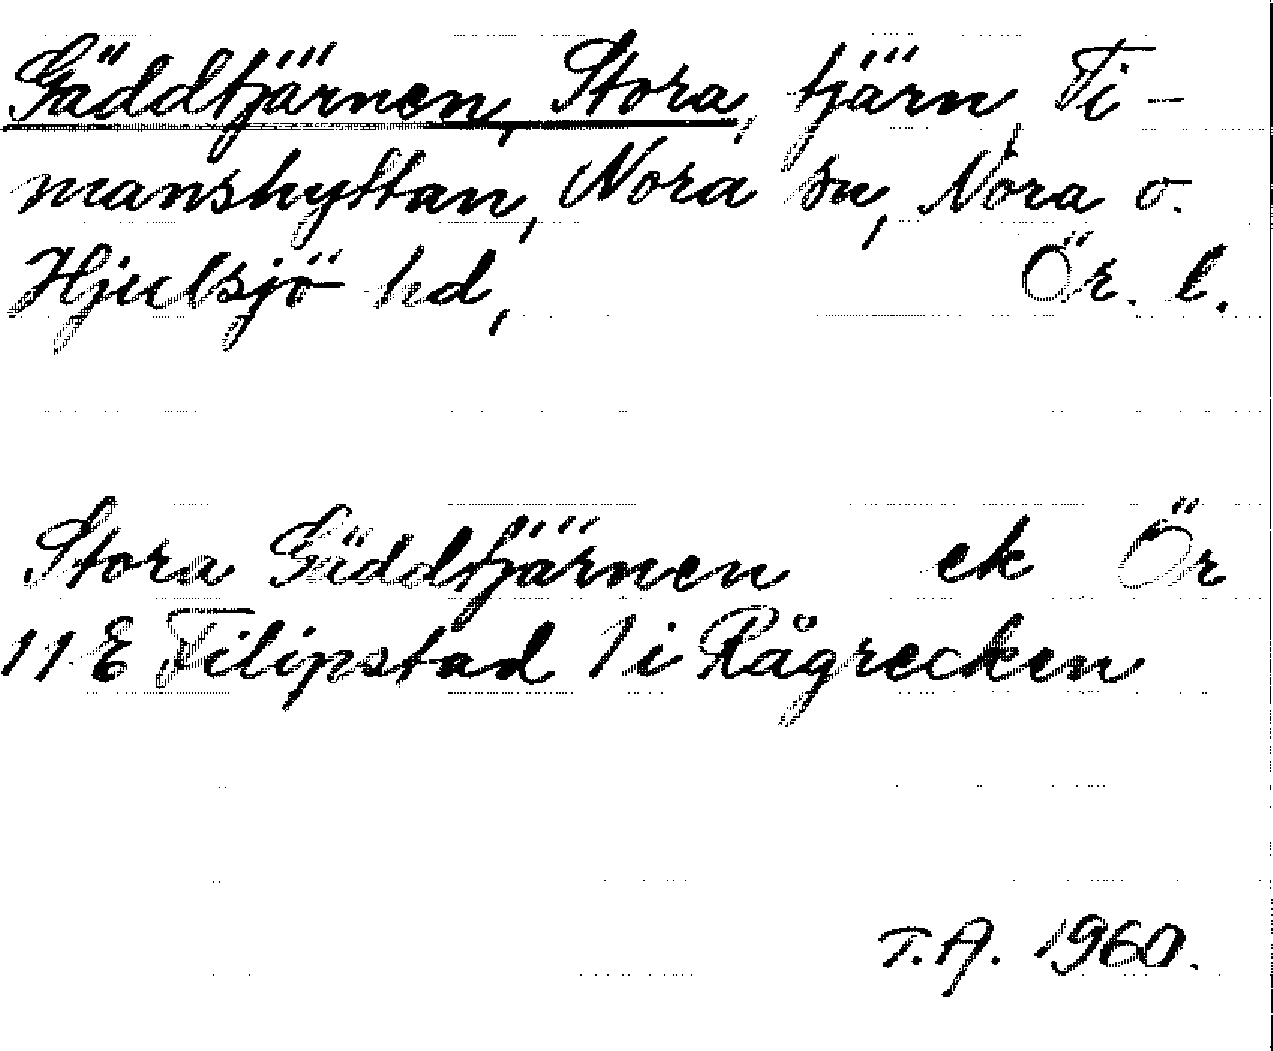 Gäddtjärnen, Stora, tjärn, Ti-
manshyttan, Nora sn, Nora o.
Hjulsjö hd, Ör. l.
Stora Gäddtjärnen ek Ör
11 E Filipstad 1 i Rågrecken
T.A. 1960.